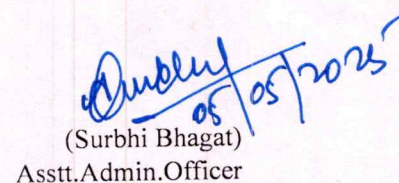 Surbhi
05/05/2025
(Surbhi Bhagat)
Asstt.Admin.Officer